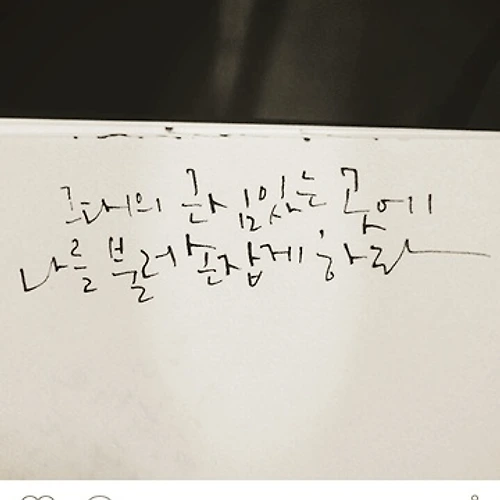 그대의 근심있는 곳에
나를 불러 손잡게 하라